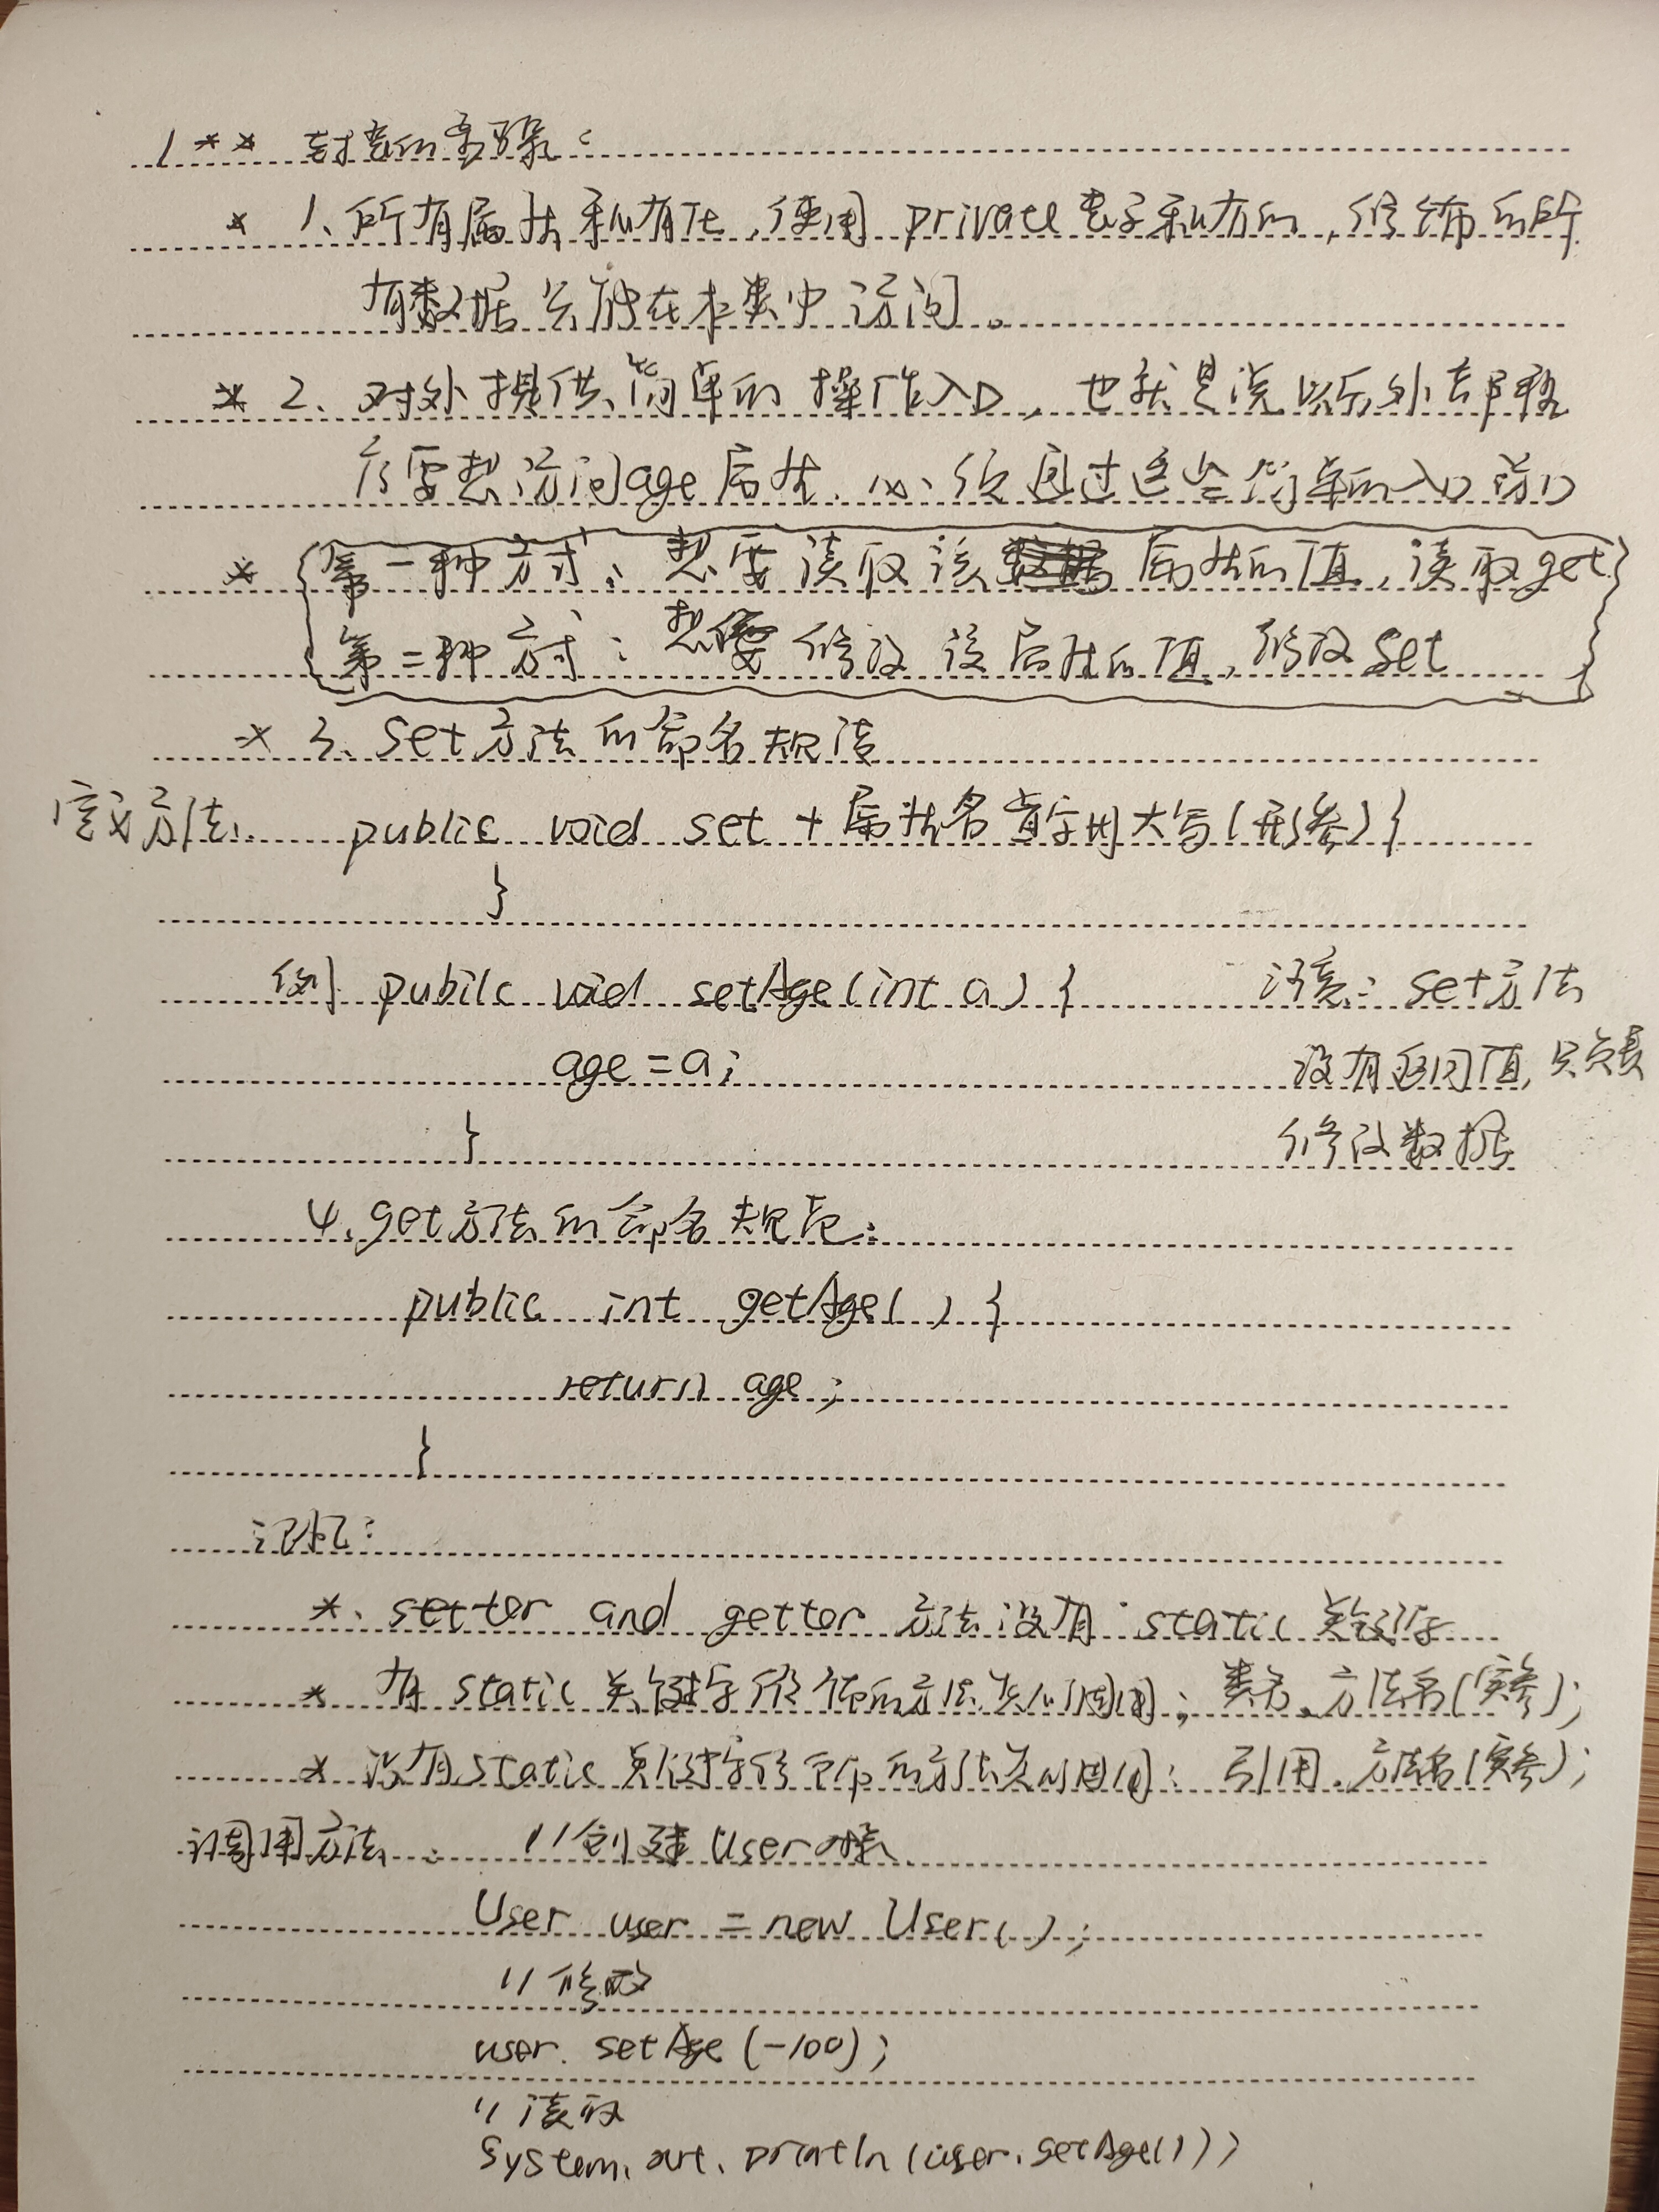 /** 封装的步骤：
* 1、所有属性私有化,使用 private 表示私有的,修饰的所
有数据只能在本类中访问。
* 2、对外提供简单的操作入口，也就是说以后外部程
序要想访问age属性,必须通过这些简单的入口访问
* 第一种方式：想要读取该属性的值,读取get
第二种方式：想要修改该属性的值,修改set
* 3、set方法的命名规范
定义方法： public void set + 属性名首字母大写(形参) {
}
例 pubilc void setAge(int a) { 注意：set方法
age = a; 没有返回值,只负责
} 修改数据
4、get方法的命名规范：
public int getAge( ) {
return age;
}
记忆：
*、setter and getter 方法没有 static 关键字
* 有 static 关键字修饰的方法怎么调用：类名.方法名(实参);
* 没有static关键字修饰的方法怎么调用：引用.方法名(实参);
调用方法： //创建User对象
User user = new User( );
//修改
user. setAge (-100);
//读取
System. out. println (user. getAge( ))